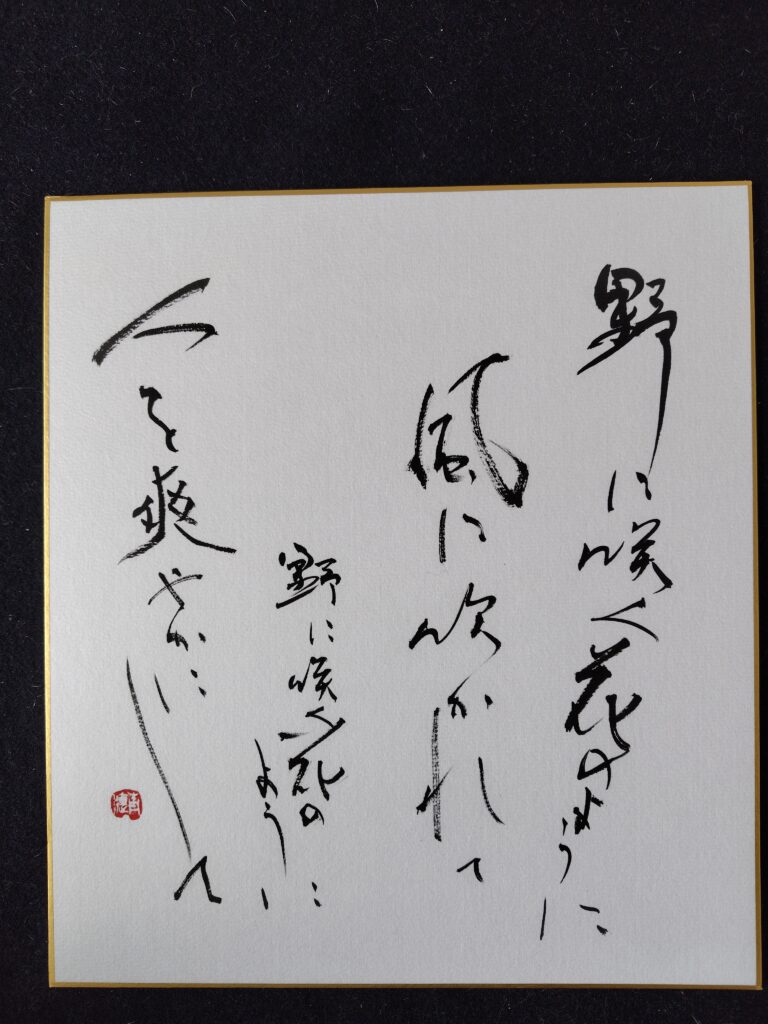 野に咲く花のように
風に吹かれて
野に咲く花の
ように
人を爽やかにして